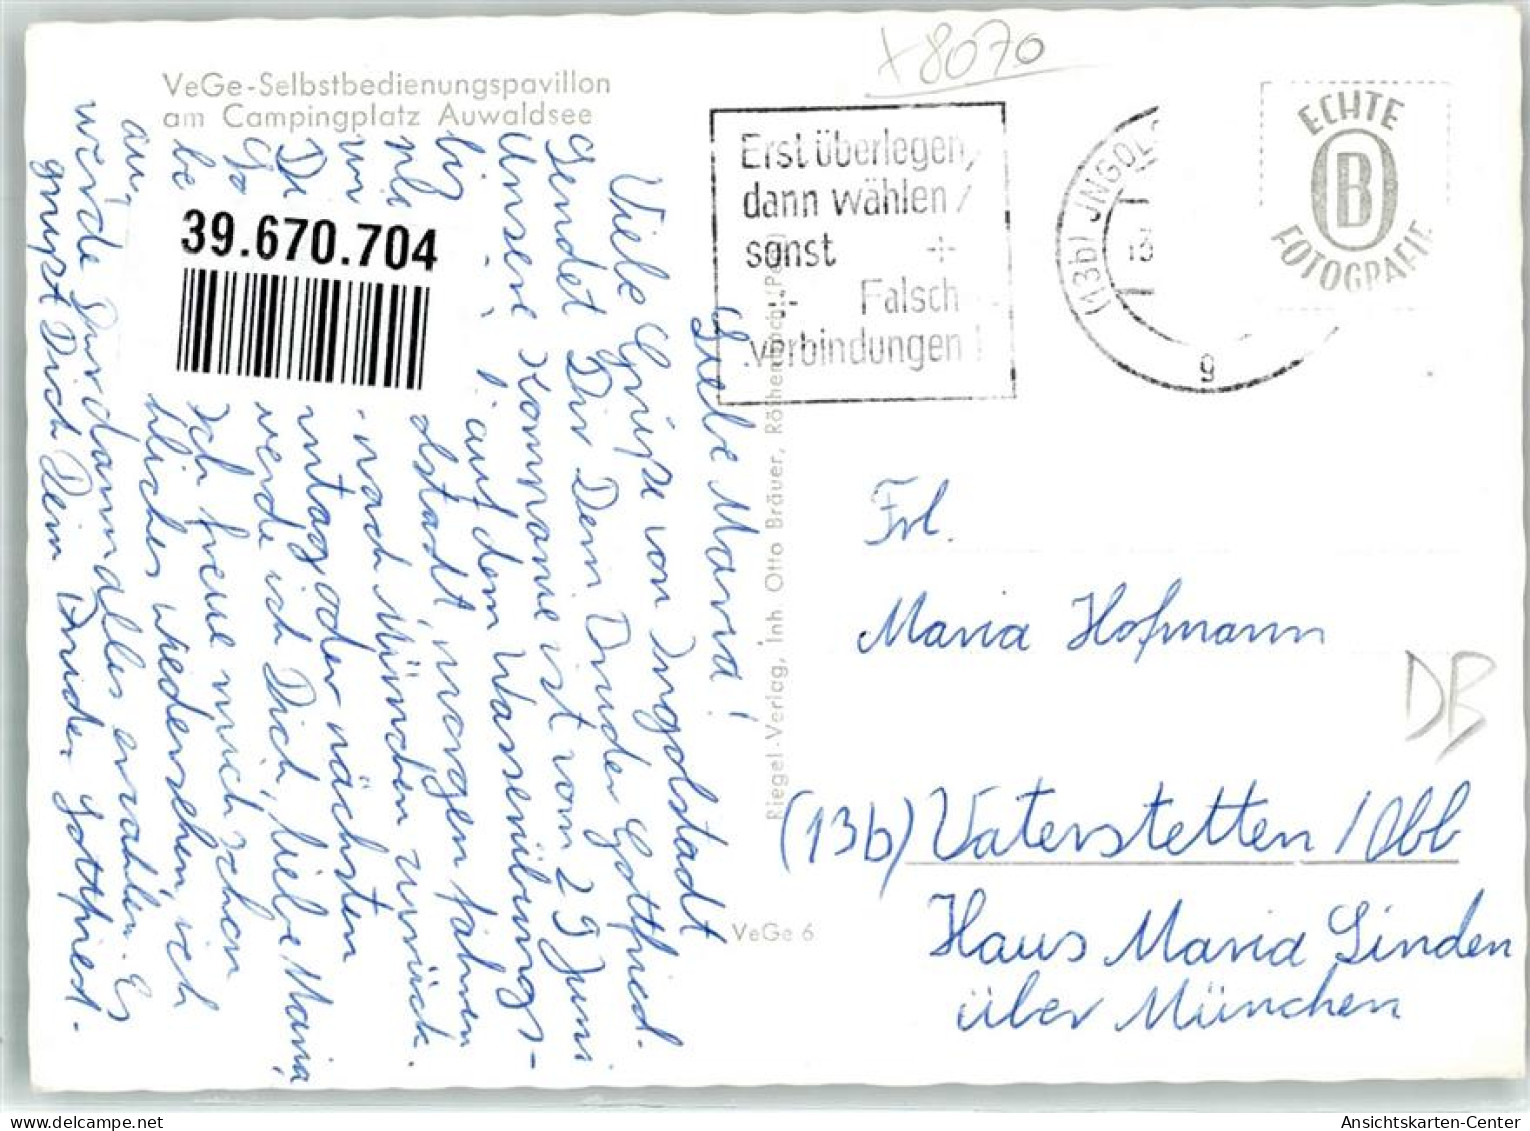 VeGe-Selbstbedienungspavillon
am Campingplatz Auwaldsee
x8070
Erst überlegen,
dann wählen /
sonst +
+ Falsch
verbindungen !
(13b) JNGOLS
13
g
ECHTE
B
FOTOGRAFIE
39.670.704
Liebe Maria!
Viele Grüße von Ingolstadt
sendet Dir Dein Bruder Gottfried.
Unsere Kompanie ist vom 29 Juni
bis auf dem Wasserübungs-
pla olstadt, morgen fahren
wir nach München zurück.
Di nntag oder nächsten
werde ich Dich, liebe Maria,
be Ich freue mich schon
auf hliches wiedersehen, ich
werde Dir dann alles erzählen. Es
grüßt Dich Dein Bruder Gottfried.
Riegel-Verlag, Inh Otto Bräuer, Röthenbach (Peg)
VeGe 6
Frl.
Maria Hofmann
DB
(13b) Vaterstetten / Obb
Haus Maria Linden
über München
Ansichtskarten-Center